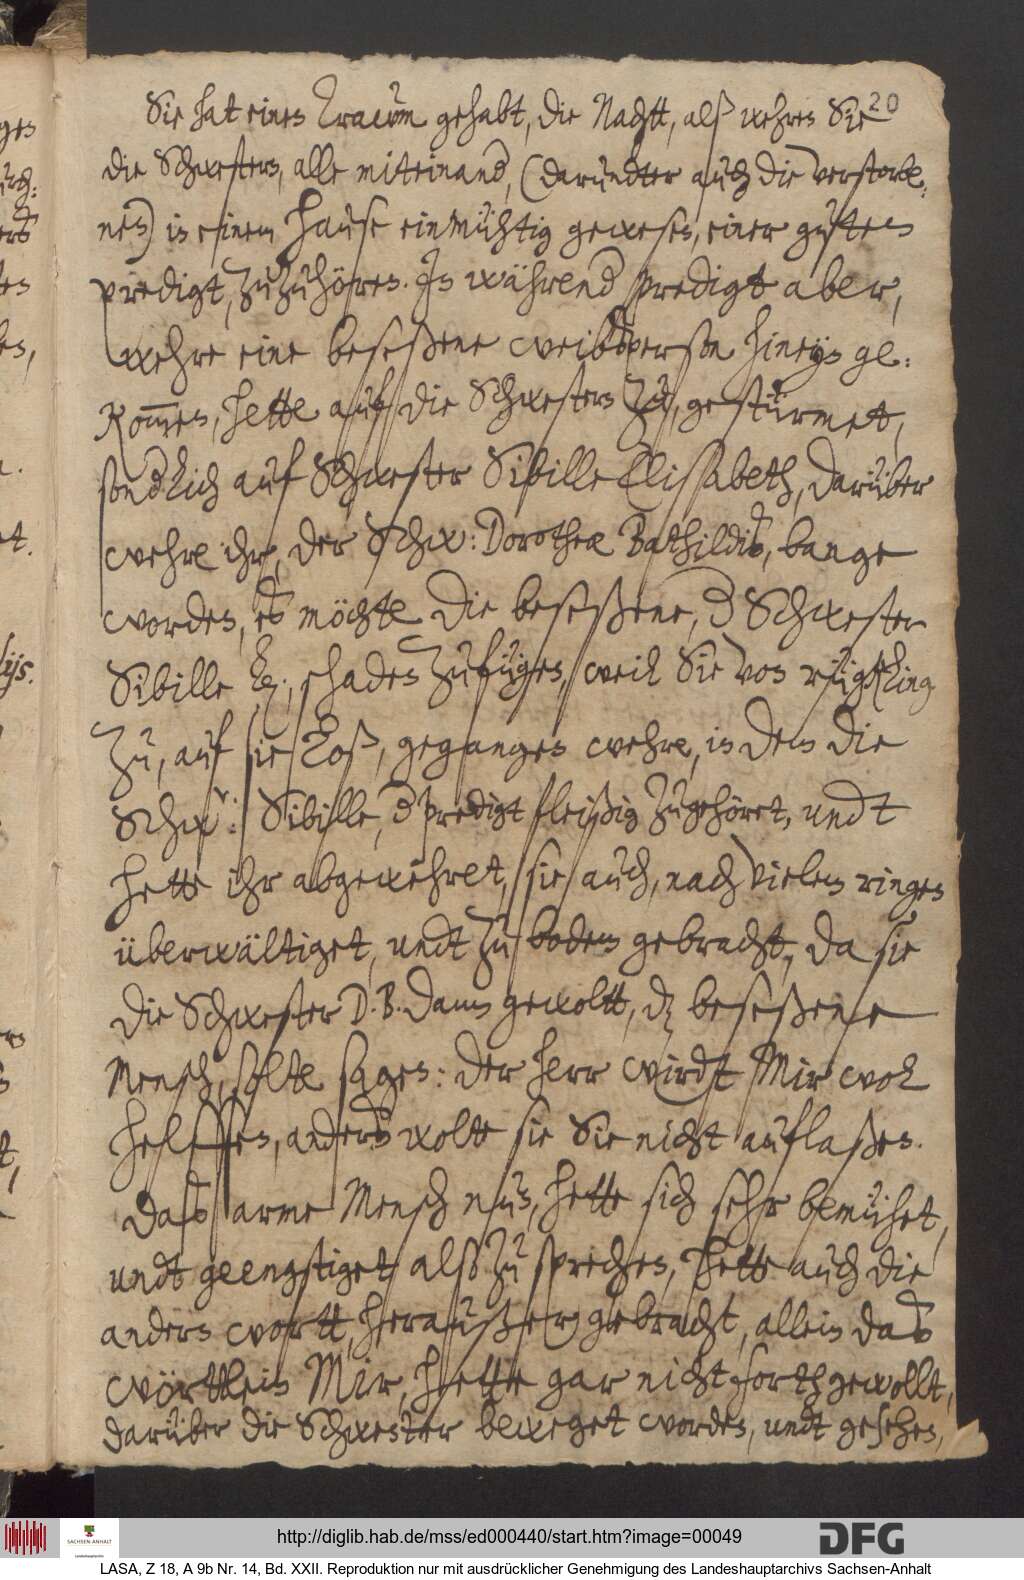 20
Sie hat einen Traum gehabt, die Nachtt, alß wehren Sie
die Schwestern, alle miteinand, (darundter auch die verstorbe:
nen) in einem Hause einmühtig gewesen, einer gutten
predigt, zuzuhören. In während predigt aber,
wehre eine beseßene weibsperson hineyn ge:
kom̄en, hette auf die Schwestern zu, gestürmet,
sondlich auf Schwester Sibille Elisabeth, darüber
wehre ihr, der Schw: Dorotheæ Bathildis, bange
worden, es möchte die beseßene, d Schwester
Sibille E., schaden zufügen, weil Sie von ring
zu, auf sie loß, gegangen wehre, in dem die
Schw: Sibille, d predigt fleißig zugehöret, undt
hette ihr abgewehret, sie auch, nach vielem ringen
überwältiget, undt zu bodem gebracht, da sie
die Schwester D. B. dann gewoltt, dz beseßene
Mensch, solte sagen: der herr wirdt Mir wol
helffen, anders wolte sie Sie nicht auflaßen.
Das arme Mensch nun, hette sich sehr bemühet,
undt geengstiget alß zu sprechen, hette auch die
andern wortt, heraußer gebracht, allein das
wörttlein Mir, hette gar nicht forth gewollt,
darüber die Schwester beweget worden, undt gesehen,
http://diglib.hab.de/mss/ed000440/start.htm?image=00049
SACHSEN-ANHALT
Landeshauptarchiv
DFG
LASA, Z 18, A 9b Nr. 14, Bd. XXII. Reproduktion nur mit ausdrücklicher Genehmigung des Landeshauptarchivs Sachsen-Anhalt